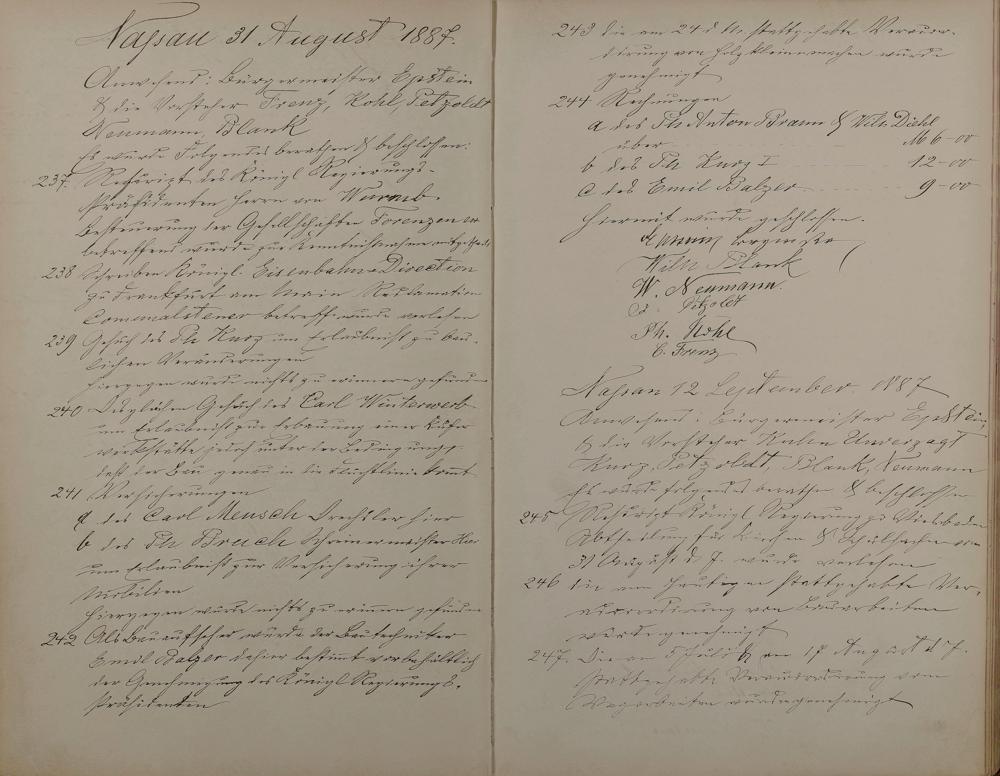 Nassau 31 August 1887.
Anwesend: Bürgermeister Epstein
& die Vorsteher Frenz, Kohl, Petzoldt
Neumann, Blank
Es wurde Folgendes berathen & beschlossen:
237. Rescript des Königl Regierungs-
Präsidenten Herrn von Wurmb.
Besteuerung der Gesellschaften Forenzen
betreffend wurde zur Kenntnißnahme mitgetheilt
238 Schreiben Königl. Eisenbahn-Direction
zu Frankfurt am Main Reclamation
Comunalsteuer betreff. wurde verlesen
239 Gesuch des Ph Kurz um Erlaubniß zu bau-
lichen Veränderungen
Hiergegen wurde nichts zu erinnern gefunden
240 Desgleichen Gesuch des Carl Winterwerb
um Erlaubniß zur Erbauung einer Küfer
werkstätte jedoch unter der Bedingung
daß der Bau genau in die Fluchtlinie kommt
241 Versicherungen
a des Carl Mensch Drechsler hier
b des Ph Bruch Schreinermeister Hier
um Erlaubniß zur Versicherung ihrer
Mobilien
Hiergegen wurde nichts zu erinnern gefunden
242 Als Bauaufseher wurde der Bautechniker
Emil Balzer dahier bestimmt vorbehältlich
der Genehmigung des Königl Regierungs-
Präsidenten
243 Die am 24 d. M. stattgehabte Veraccor-
dirung von Holzkleinmachen wurde
genehmigt
244 Rechnungen
a des Ph Anton Braun & Wilh Diehl
über M 6-00
b des Ph Kurz I 12-00
c des Emil Balzer 9-00
Hiermit wurde geschlossen.
Wilh Blank
W. Neumann.
Petzoldt
Ph. Kohl
C. Frenz
Nassau 12 September 1887
Anwesend: Bürgermeister Epstein
& die Vorsteher Unverzagt
Kurz, Petzoldt, Blank, Neumann
Es wurde folgendes berathen & beschlossen
245 Rescript Königl Regierung zu Wiesbaden
Abtheilung für Kirchen & Schulsachen vom
31 August d. J. wurde verlesen
246 Die am heutigen stattgehabte Ver-
accordirung von Bauarbeiten
wurde genehmigt
247. Die am 5 Juli & am 17 August d. J.
stattgehabte Veraccordirung von
Wegarbeiten wurde genehmigt